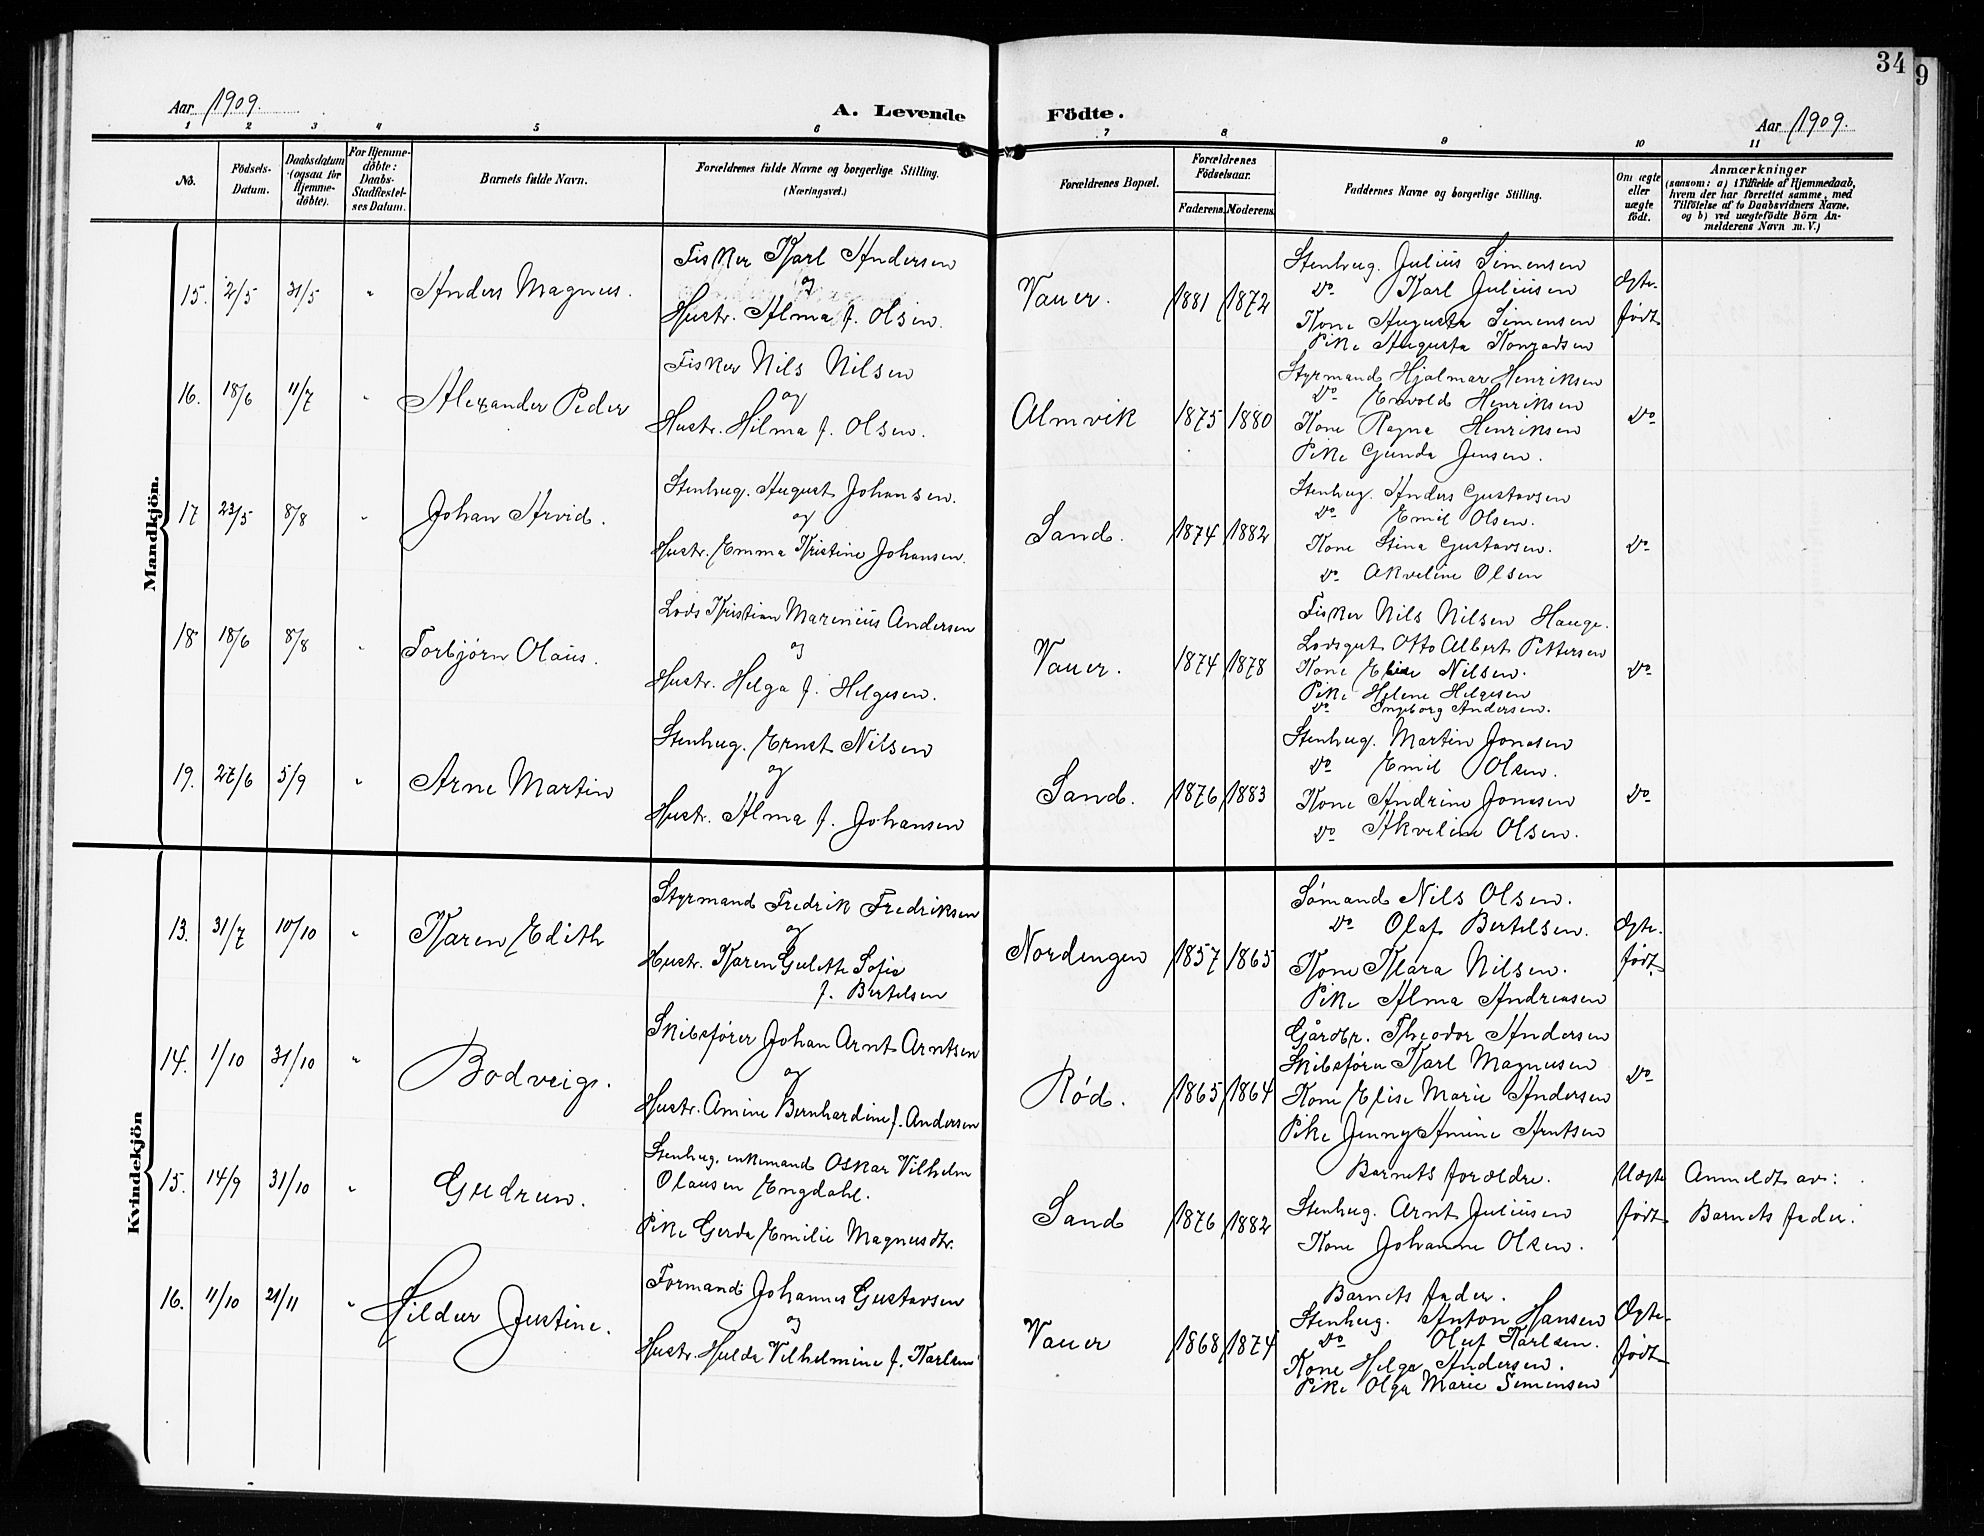 34
9
Aar 1909.
A. Levende Födte.
Aar 1909.
1 2 3 4 5 6 7 8 9 10 11
No.
Födsels-
Datum.
Daabsdatum
(ogsaa for
Hjemme-
döbte).
For Hjemme-
döbte:
Daabs-
Stadfæstel-
ses Datum.
Barnets fulde Navn.
Forældrenes fulde Navne og borgerlige Stilling.
(Næringsvei.)
Forældrenes Bopæl.
Forældrenes
Födselsaar.
Faderens.
Moderens.
Faddernes Navne og borgerlige Stilling.
Om ægte
eller
uægte
födt.
Anmærkninger
(saasom: a) i Tilfælde af Hjemmedaab,
hvem der har forrettet samme, med
Tilföielse af to Daabsvidners Navne.
og b) ved uægtefödte Börn An-
melderens Navn m. V.)
Mandkjön.
15. 2/5 31/5 " Anders Magnus.
Fisker Karl Andersen
og
Hustr. Alma f. Olsen.
Vauer. 1881 1872
Stenhug. Julius Simensen
Do Karl Juliusen
Kone Augusta Simensen
Pike Augusta Konradsen
Ægte-
født
16. 18/6 11/7 " Alexander Peder
Fisker Nils Nilsen
og
Hustr. Hilma f. Olsen.
Almvik 1875 1880
Styrmand Hjalmar Henriksen
Do Envold Henriksen
Kone Ragna Henriksen
Pike Gunda Jensen.
Do
17 23/5 8/8 " Johan Arvid.
Stenhug. August Johansen.
og
Hustr. Emma Kristine Johansen.
Sand. 1874 1882
Stenhug. Anders Gustavsen
Do Emil Olsen.
Kone Stina Gustavsen.
Do Akveline Olsen
Do
18 18/6 8/8 " Torbjørn Olaus.
Lods Kristian Marenius Andersen
og
Hustr. Helga f. Helgesen.
Vauer. 1874 1878
Fisker Nils Nilsen Hauge.
Lodsgut Otto Albert Pettersen
Kone Elise Nilsen.
Pike Helene Helgesen
Do Ingeborg Andersen.
Do
19. 27/6 5/9 " Arne Martin
Stenhug. Ernst Nilsen
og
Hustr. Alma f. Johansen
Sand. 1876 1883
Stenhug. Martin Jonasen
Do Emil Olsen.
Kone Andrine Jonasen
Do Akveline Olsen.
Do
Kvindekjön
13. 31/7 10/10 " Karen Edith
Styrmand Fredrik Fredriksen
og
Hustr. Karen Gulette Sofie
f. Bertelsen
Nordengen 1857 1865
Sømand Nils Olsen.
Do Olaf Bertelsen.
Kone Klara Nilsen.
Pike Alma Andreasen
Ægte-
født
14. 1/10 31/10 " Bodveig.
Skibsfører Johan Arnt Arntsen
og
Hustr. Amine Bernhardine f. Andersen
Rød. 1865 1864
Gårdbr. Theodor Andersen
Skibsfører Karl Magnusen
Kone Elise Marie Andersen
Pike Jenny Amine Arntsen
Do
15. 14/9 31/10 " Gudrun.
Stenhug. enkemand Oskar Vilhelm
Olausen Engdahl.
Pike Gerda Emilie Magnusdtr.
Sand 1876 1882
Barnets forældre.
Stenhug. Arnt Juliusen
Kone Johanne Olsen.
Uægte
født
Anmeldt av:
Barnets fader.
16. 11/10 21/11 " Hildur Justine.
Formand Johannes Gustavsen
og
Hustr. Hulda Vilhelmine f. Karlsen
Vauer 1868 1874
Barnets fader.
Stenhug. Anton Hansen
Do Oluf Karlsen.
Kone Helga Andersen.
Pike Olga Marie Simensen
Ægte-
født